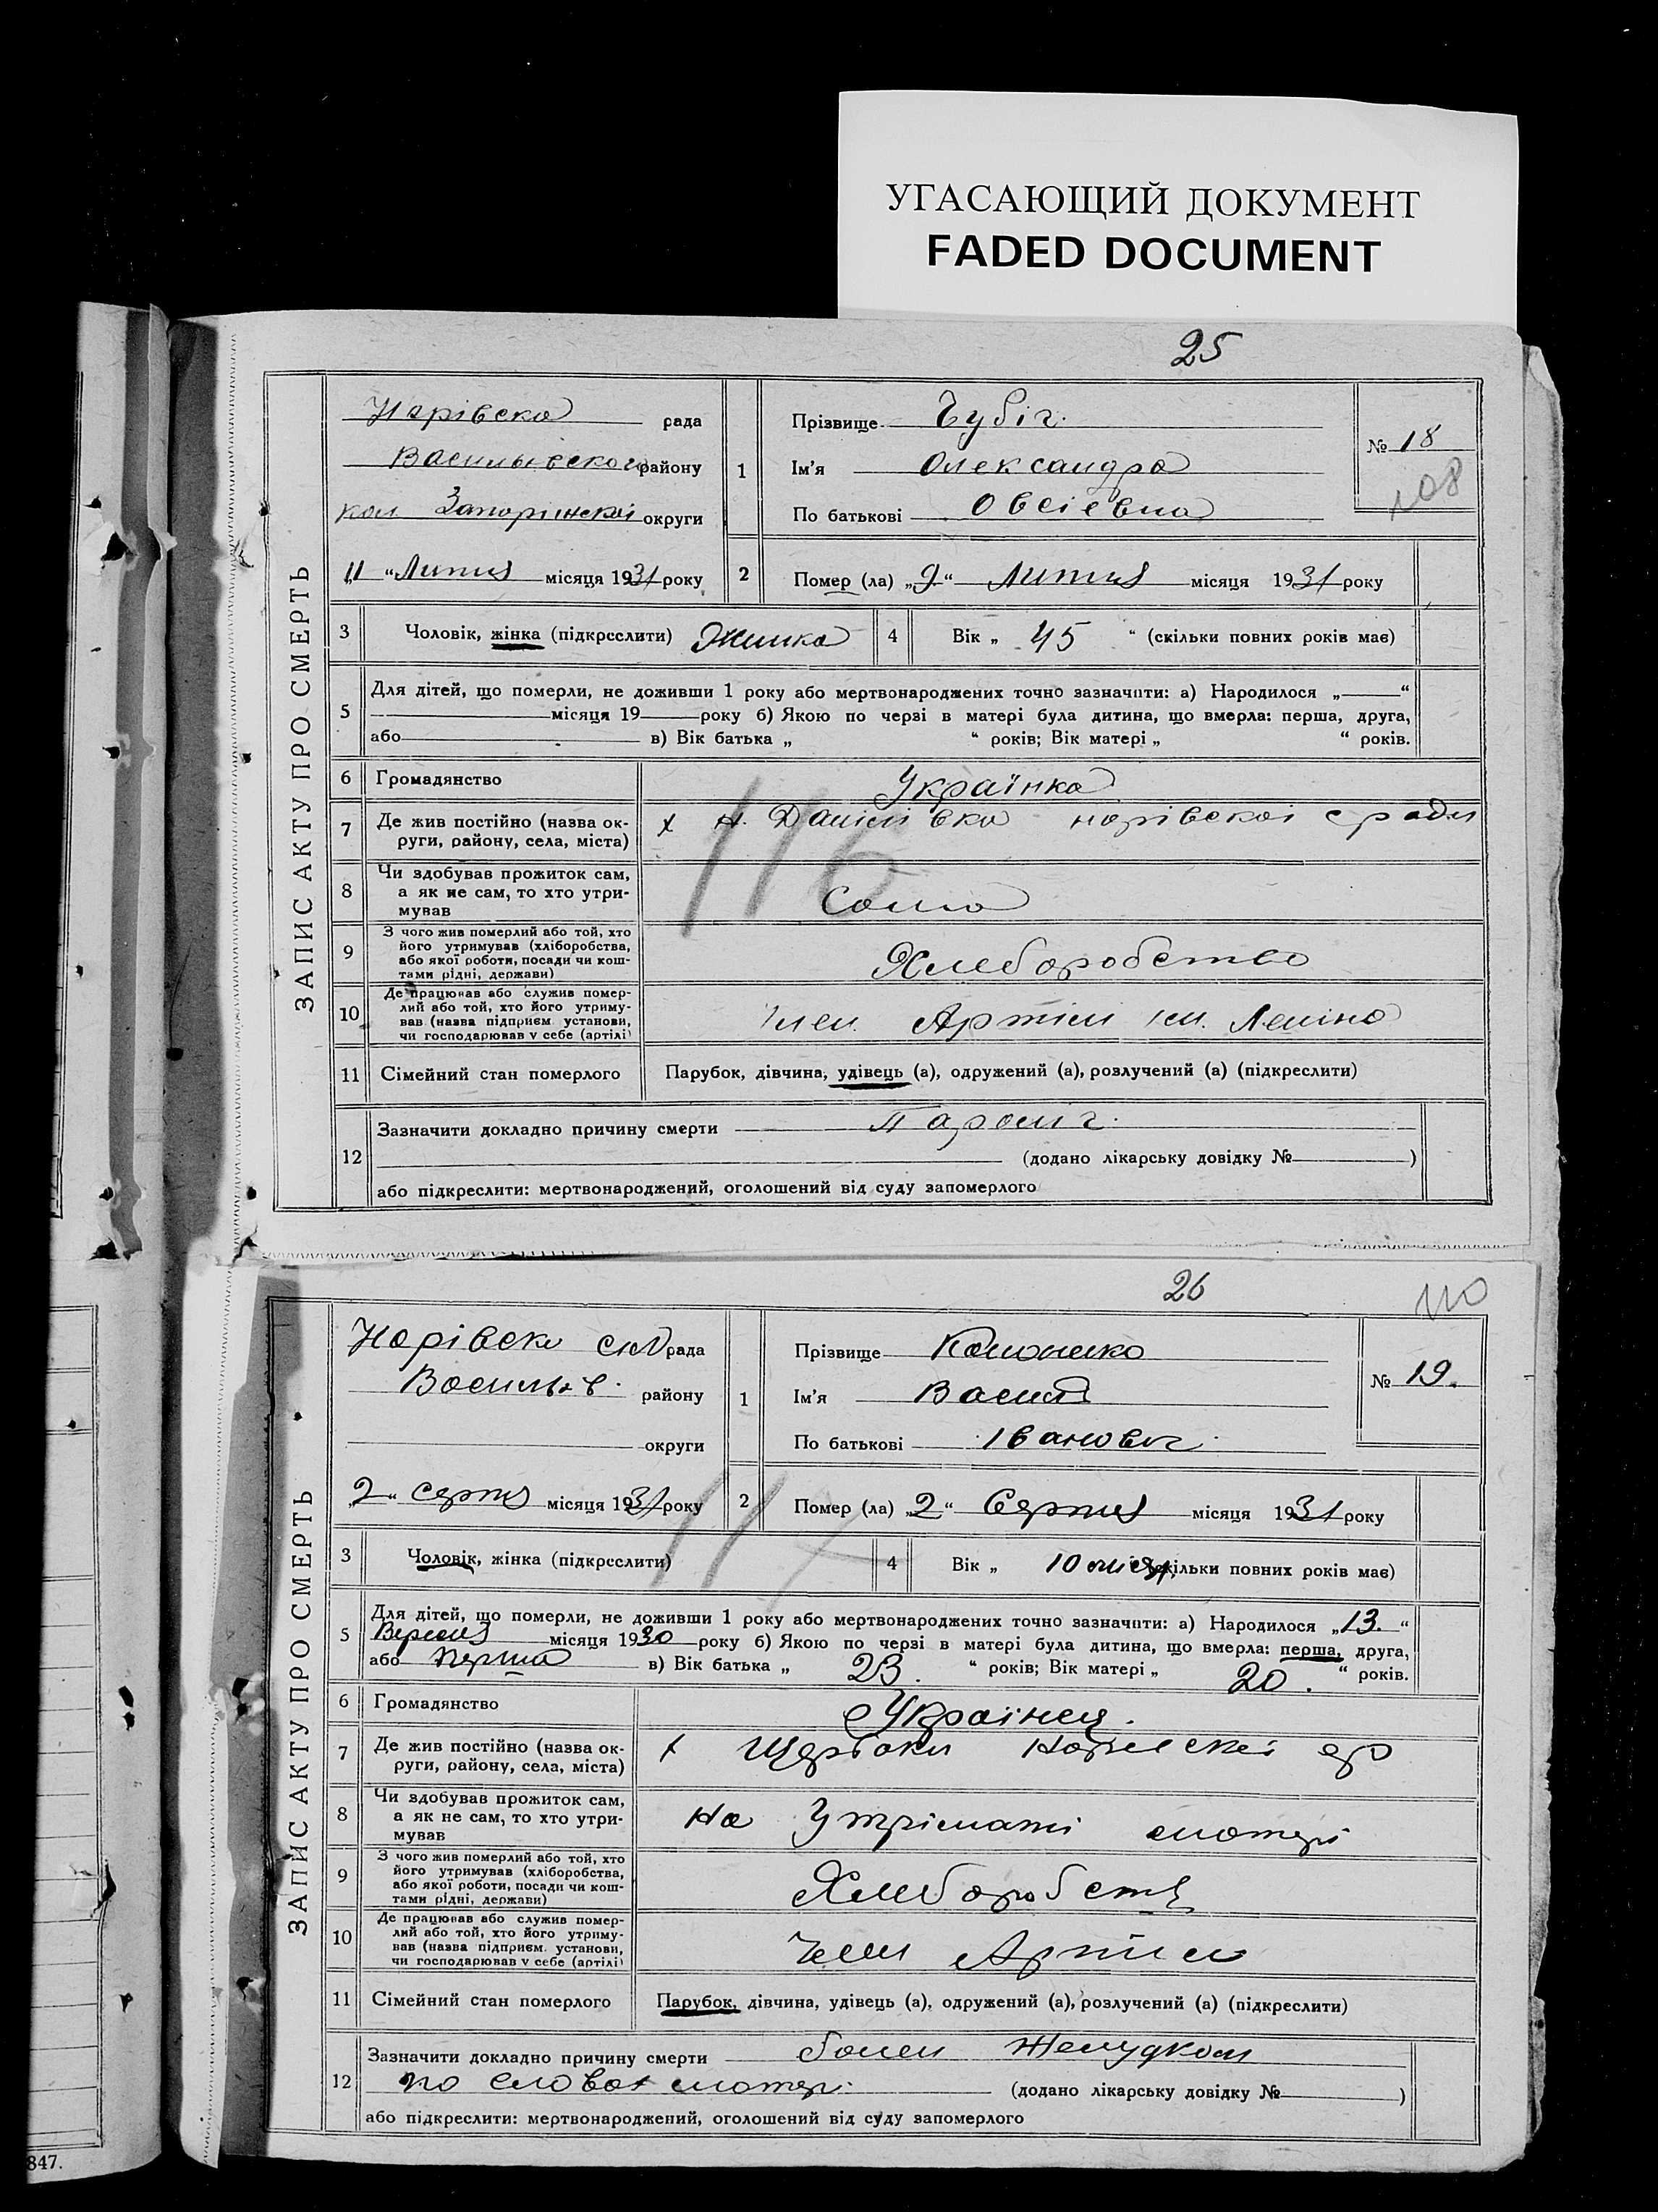 УГАСАЮЩИЙ ДОКУМЕНТ
FADED DOCUMENT
25
ЗАПИС АКТУ ПРО СМЕРТЬ
рада
Василівского району
кол Запоріжскоі округи
"11" Липня місяця 1931 року
1
Прізвище Чубіч.
Ім'я Олександра
По батькові Овсіевна
№ 18
108
2
Помер (ла) „9" Липня місяця 1931 року
3 Чоловік, жінка (підкреслити) Жинка
4 Вік „ 45 " (скільки повних років має)
5 Для дітей, що померли, не доживши 1 року або мертвонароджених точно зазначити: а) Народилося „ "
місяця 19 року б) Якою по черзі в матері була дитина, що вмерла: перша, друга,
або в) Вік батька „ " років; Вік матері „ " років.
6 Громадянство Українка
7 Де жив постійно (назва ок-
руги, району, села, міста)
х Н. Данілівка норівскоі с ради
116
8 Чи здобував прожиток сам,
а як не сам, то хто утри-
мував
Сама
9 З чого жив померлий або той, хто
його утримував (хліборобства,
або якої роботи, посади чи кош-
тами рідні, держави)
Хлеборобство
10 Де працював або служив помер-
лий або той, хто його утриму-
вав (назва підприєм. установи,
чи господарював у себе (артілі)
Член Артіли им. Леніна
11 Сімейний стан померлого Парубок, дівчина, удівець (а), одружений (а), розлучений (а) (підкреслити)
12 Зазначити докладно причину смерти Параліч.
(додано лікарську довідку № )
або підкреслити: мертвонароджений, оголошений від суду запомерлого
26
110
ЗАПИС АКТУ ПРО СМЕРТЬ
Норівска сіл рада
Василів. району
округи
2 " Серпня місяця 1931 року
1
Прізвище
Ім'я Василь
По батькові Іванович
№ 19.
2
Помер (ла) „2" Серпня місяця 1931 року
117
3 Чоловік, жінка (підкреслити)
4 Вік „ 10 місяц. скільки повних років має)
5 Для дітей, що померли, не доживши 1 року або мертвонароджених точно зазначити: а) Народилося „13."
Вересня місяця 1930 року б) Якою по черзі в матері була дитина, що вмерла: перша, друга,
або перша в) Вік батька „ 23. " років; Вік матері „ 20. " років.
6 Громадянство Українец.
7 Де жив постійно (назва ок-
руги, району, села, міста)
х Щербаки
8 Чи здобував прожиток сам,
а як не сам, то хто утри-
мував
На Утріманні матері
9 З чого жив померлий або той, хто
його утримував (хліборобства,
або якої роботи, посади чи кош-
тами рідні, держави)
Хлеборобств
10 Де працював або служив помер-
лий або той, хто його утриму-
вав (назва підприєм. установи,
чи господарював у себе (артілі)
Член Артіли
11 Сімейний стан померлого Парубок, дівчина, удівець (а), одружений (а), розлучений (а) (підкреслити)
12 Зазначити докладно причину смерти болен Желудком
по словах матері. (додано лікарську довідку № )
або підкреслити: мертвонароджений, оголошений від суду запомерлого
847.